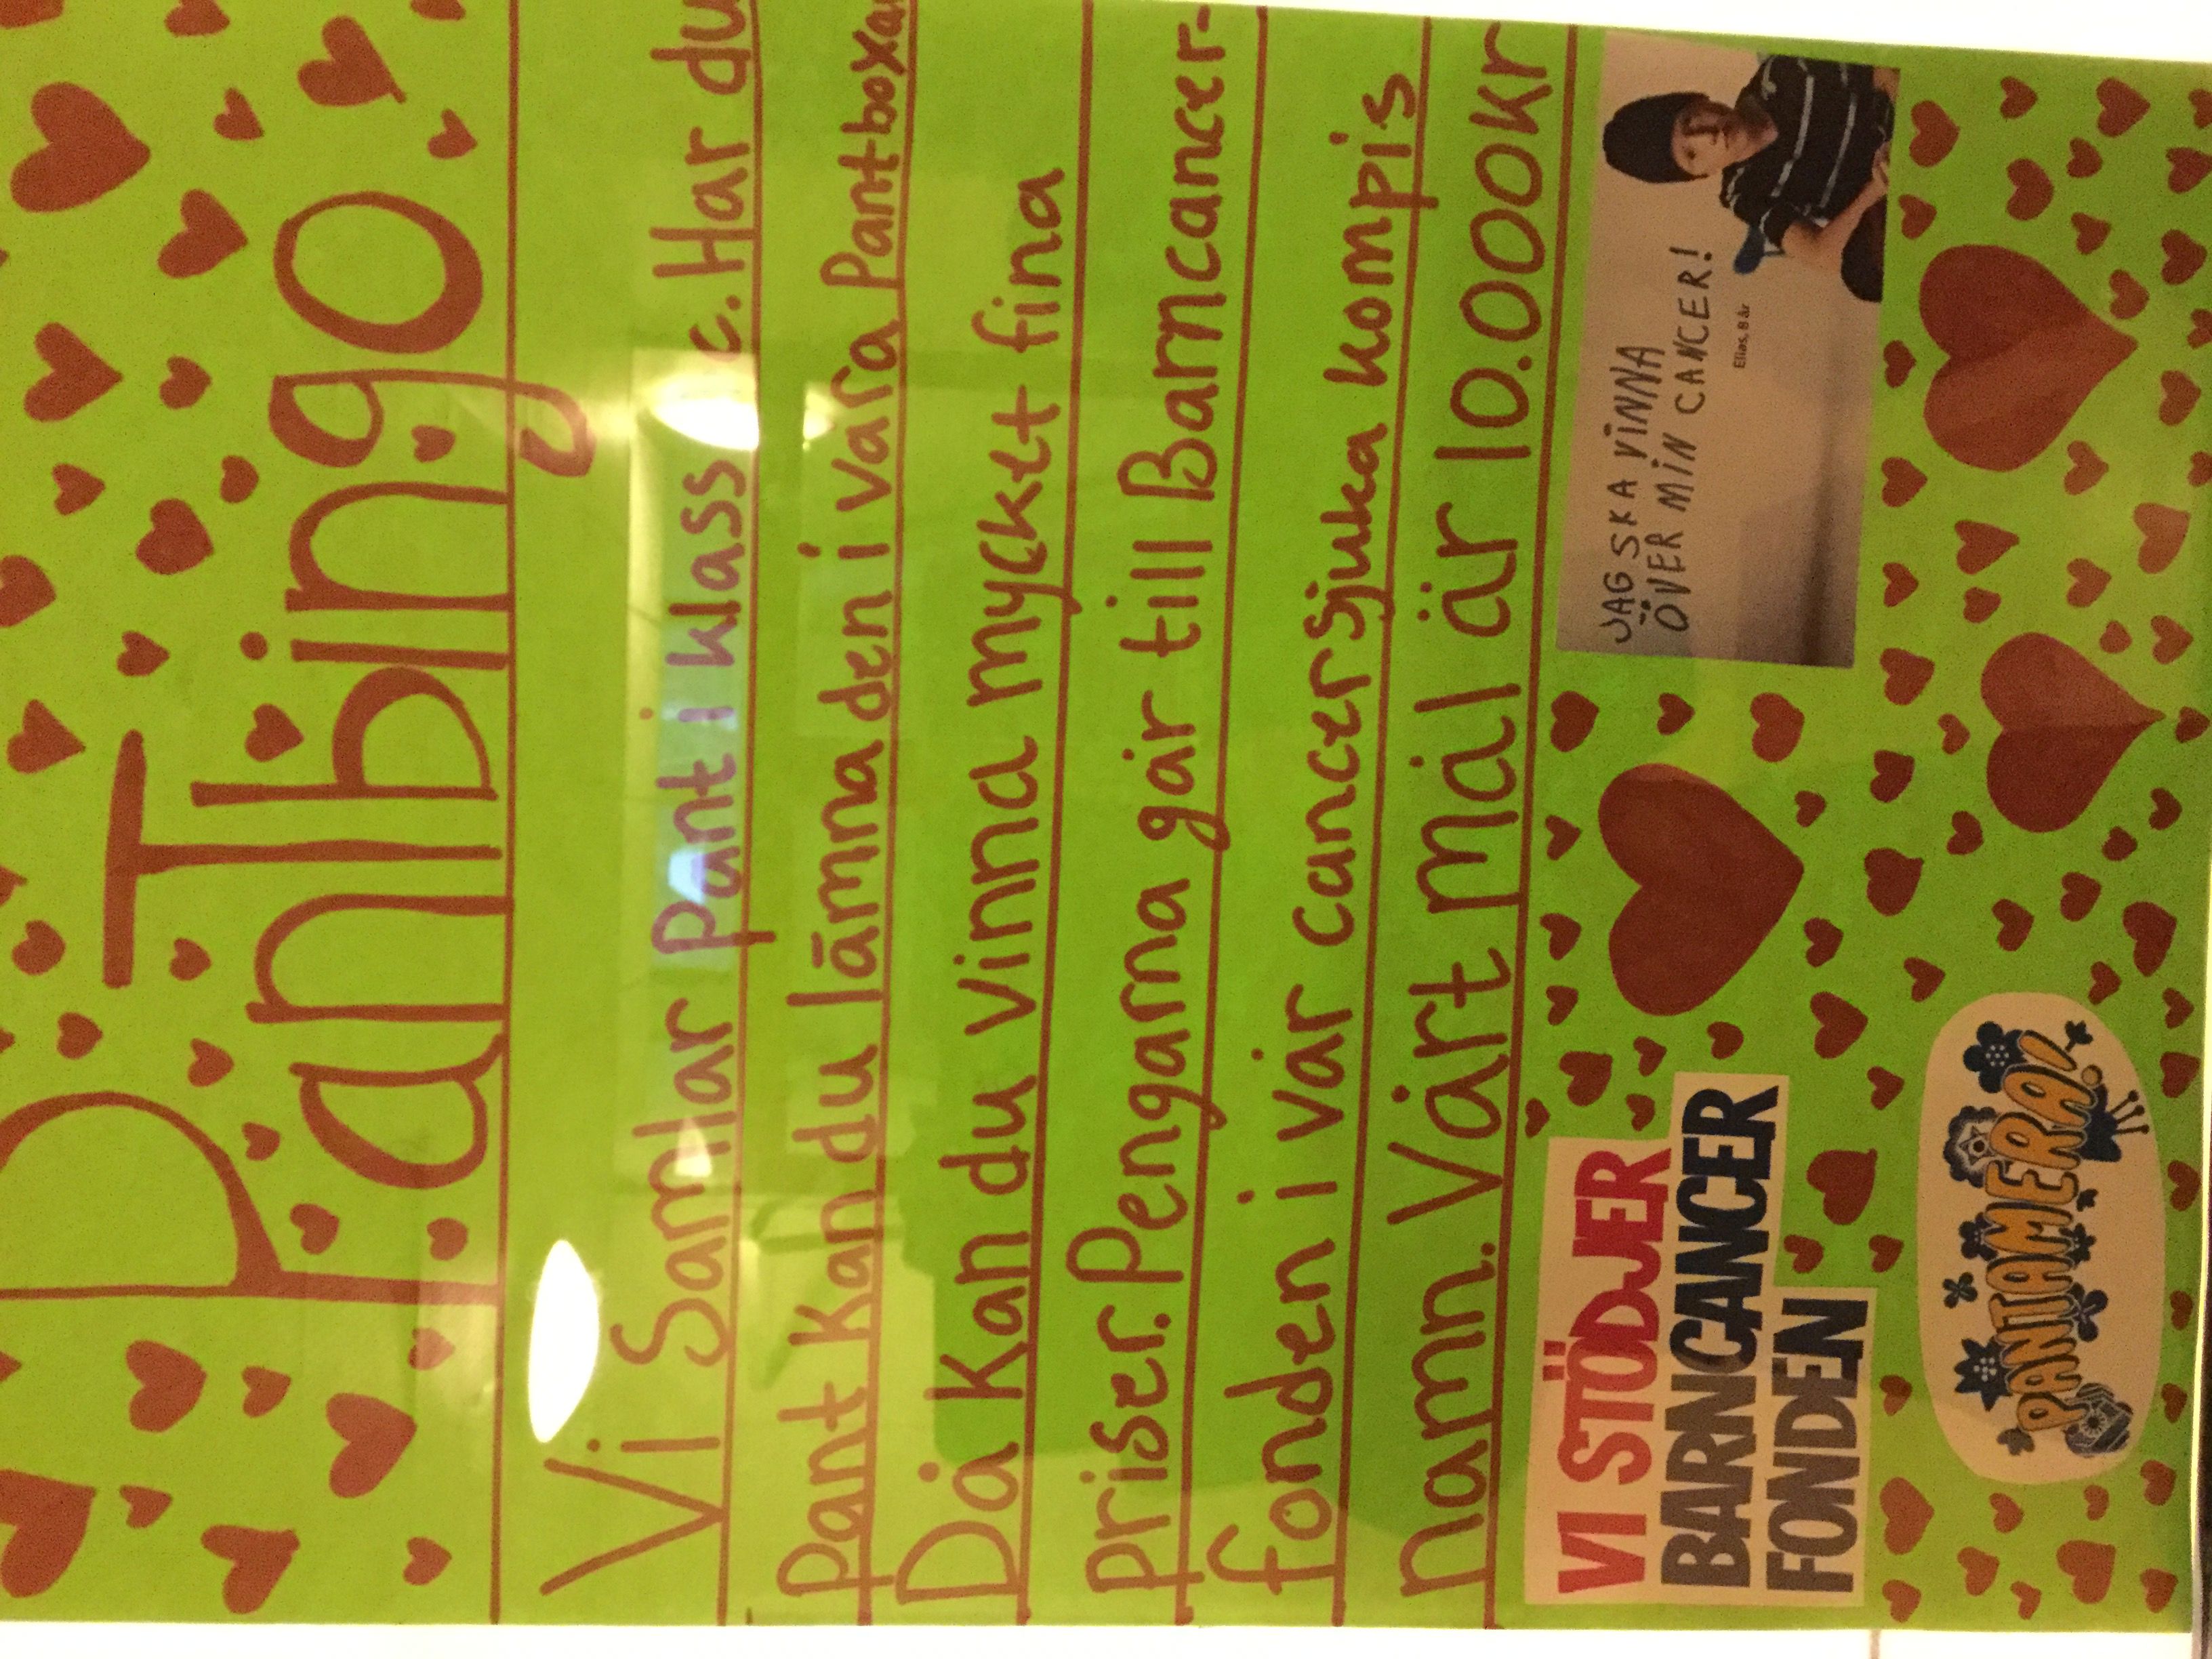 PanTbingo
Vi Samlar Pant i klass c. Har du
Pant Kan du lämna den i våra Pantboxar
Då Kan du vinna mycket fina
priser. Pengarna går till Barncancer-
fonden i vår cancersjuka kompis
namn. Vårt mål är 10.000kr
VI STÖDJER
BARNCANCER
FONDEN
JAG SKA VINNA
ÖVER MIN CANCER!
Elias, 8 år
PANTAMERA!